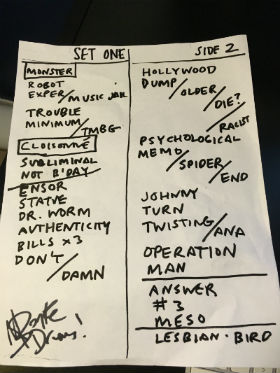 SET ONE
MONSTER
ROBOT
EXPER/MUSIC JAIL
TROUBLE
MINIMUM/TMBG
CLOISONNÉ
SUBLIMINAL
NOT B'DAY
ENSOR
STATUE
DR. WORM
AUTHENTICITY
BILLS x3
DON'T/DAMN
SIDE 2
HOLLYWOOD
DUMP/OLDER/DIE?/RACIST
PSYCHOLOGICAL
MEMO/SPIDER/END
JOHNNY
TURN
TWISTING/ANA
OPERATION
MAN
ANSWER
# 3
MESO
LESBIAN · BIRD